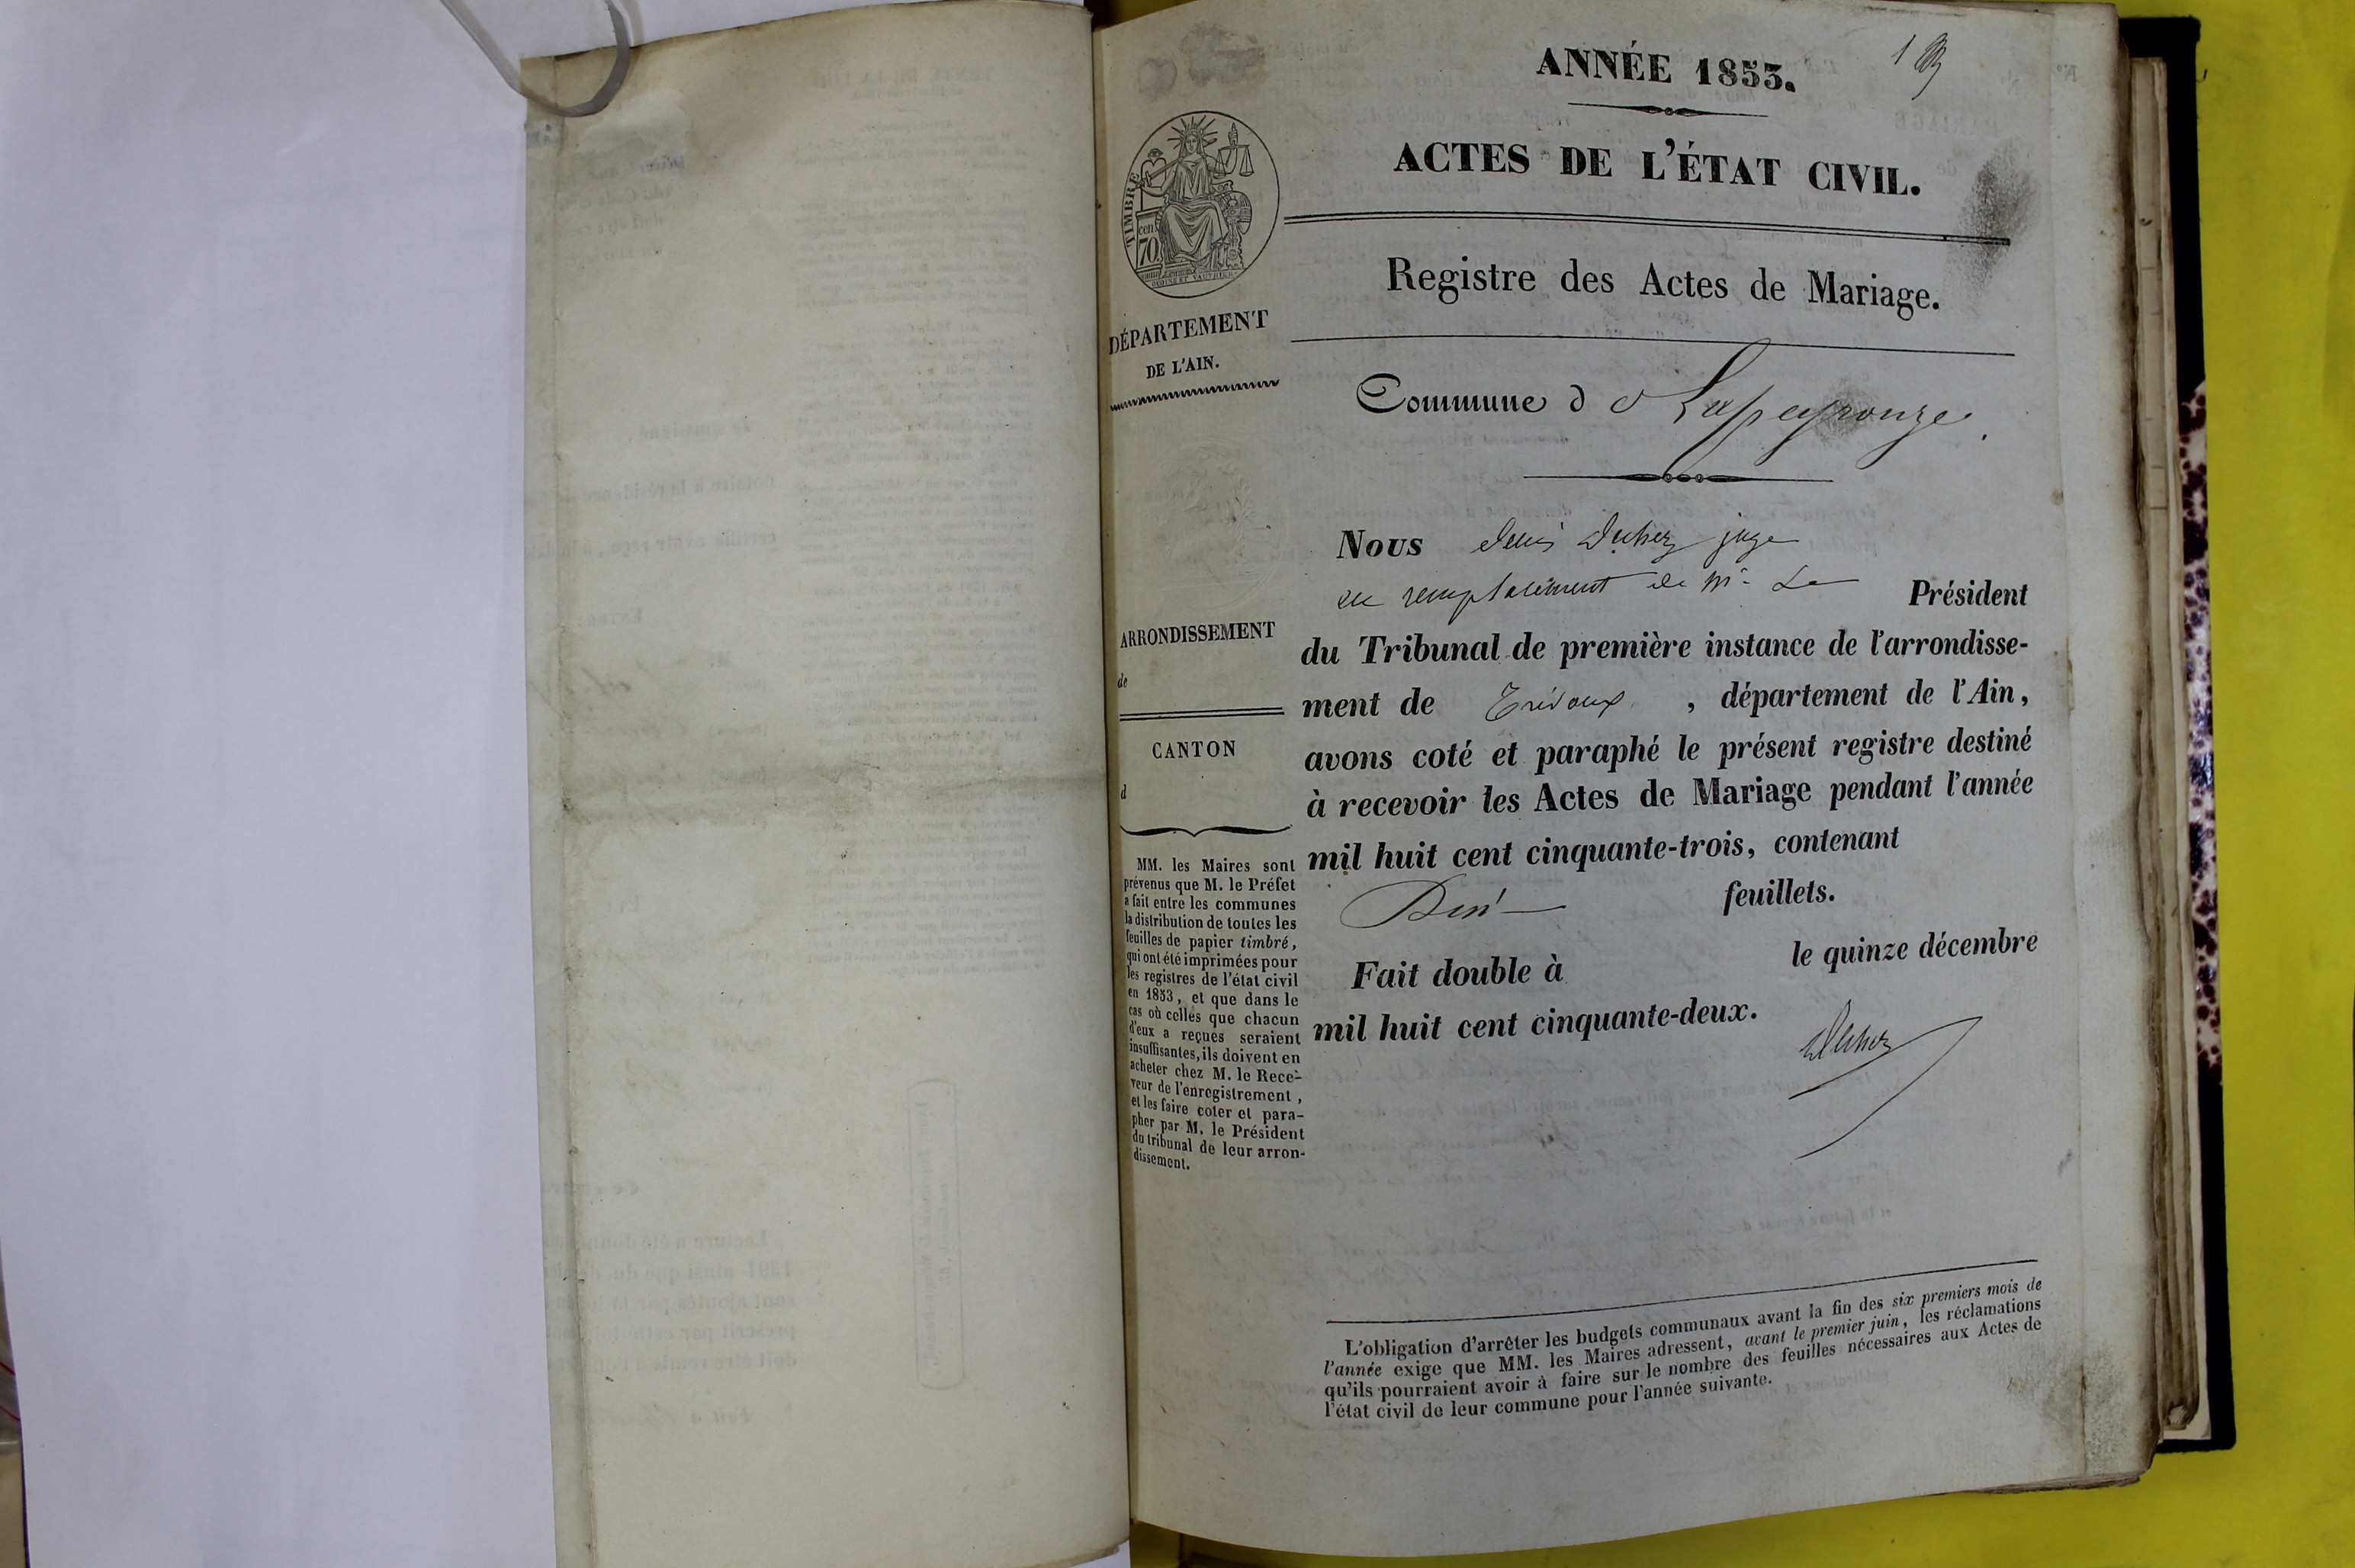 ANNÉE 1853.
1
ACTES DE L'ÉTAT CIVIL.
TIMBRE
cen.
70
Registre des Actes de Mariage.
DÉPARTEMENT
DE L'AIN.
Commune d e Lapeyrouze.
Nous Denis Duhez juge
en remplacement de Mr Le Président
du Tribunal de première instance de l'arrondisse-
ment de Trévoux, département de l'Ain,
avons coté et paraphé le présent registre destiné
à recevoir les Actes de Mariage pendant l'année
mil huit cent cinquante-trois, contenant
feuillets.
Fait double à le quinze décembre
mil huit cent cinquante-deux.
Duhez
ARRONDISSEMENT
de
CANTON
d
MM. les Maires sont
prévenus que M. le Préfet
a fait entre les communes
la distribution de toutes les
feuilles de papier timbré,
qui ont été imprimées pour
les registres de l'état civil
en 1853, et que dans le
cas où celles que chacun
d'eux a reçues seraient
insuffisantes, ils doivent en
acheter chez M. le Rece-
veur de l'enregistrement,
et les faire coter et para-
pher par M. le Président
du tribunal de leur arron-
dissement.
L'obligation d'arrêter les budgets communaux avant la fin des six premiers mois de
l'année exige que MM. les Maires adressent, avant le premier juin, les réclamations
qu'ils pourraient avoir à faire sur le nombre des feuilles nécessaires aux Actes de
l'état civil de leur commune pour l'année suivante.